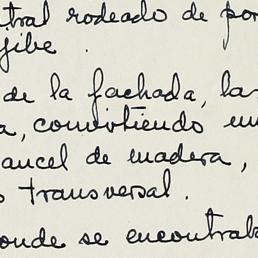 tral rodeado de por
jibe.
de la fachada, la
a, convirtiendo en
ancel de madera,
s transversal.
onde se encontrab